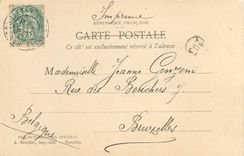 Imprimé
RÉPUBLIQUE FRANÇAISE
CARTE POSTALE
Ce côté est exclusivement réservé à l'adresse
Mademoiselle Jeanne
Rue des Bouchers 7
Bruxelles
Belgique
A. Bourdier, imp.-édit. Versailles